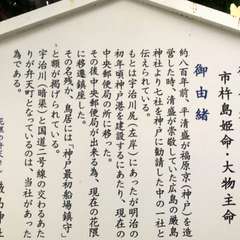 市杵島姫命・大物主命
御由緒
約八百年前、平清盛が福原京(神戸)を造
営した時、清盛が崇敬していた広島の厳島
神社より七社を神戸に勧請した中の一社と
伝えられている。
もとは宇治川尻(左岸)にあったが明治の
初年頃神戸港を建設するにあたり、現在の
中央郵便局の所に移った。
その後中央郵便局が出来る為、現在の花隈
に移遷鎮座した。
その名残が、鳥居には「神戸最初場鎮守」
と額が掲げられている。
宇治川(暗渠)と国道二号線の交わるあた
りが弁天町となっているのは、当社があった
為である。